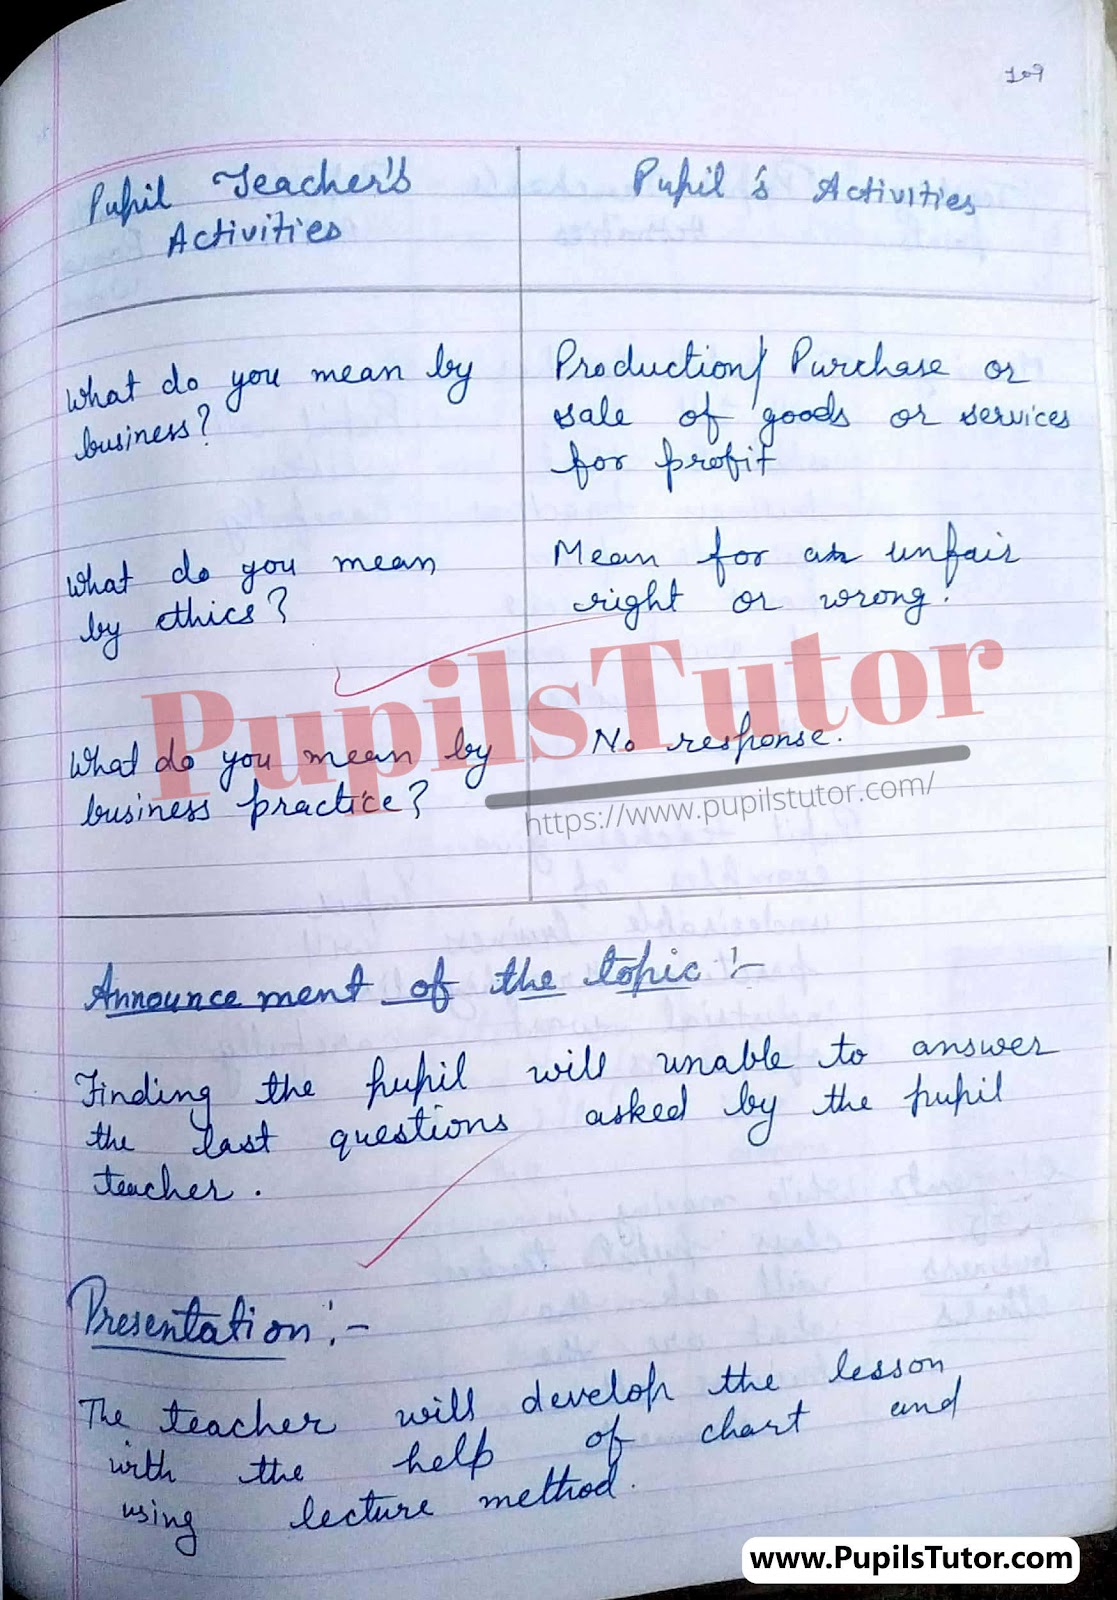 109
Pupil Teacher's
Activities
Pupil's Activities
What do you mean by
business?
Production/ Purchase or
sale of goods or services
for profit
What do you mean
by ethics?
Mean for an unfair
right or wrong.
What do you mean by
business practice?
No response.
PupilsTutor
https://www.pupilstutor.com/
Announcement of the topic :-
Finding the pupil will unable to answer
the last questions asked by the pupil
teacher.
Presentation :-
The teacher will develop the lesson
with the help of chart and
using lecture method.
www.PupilsTutor.com